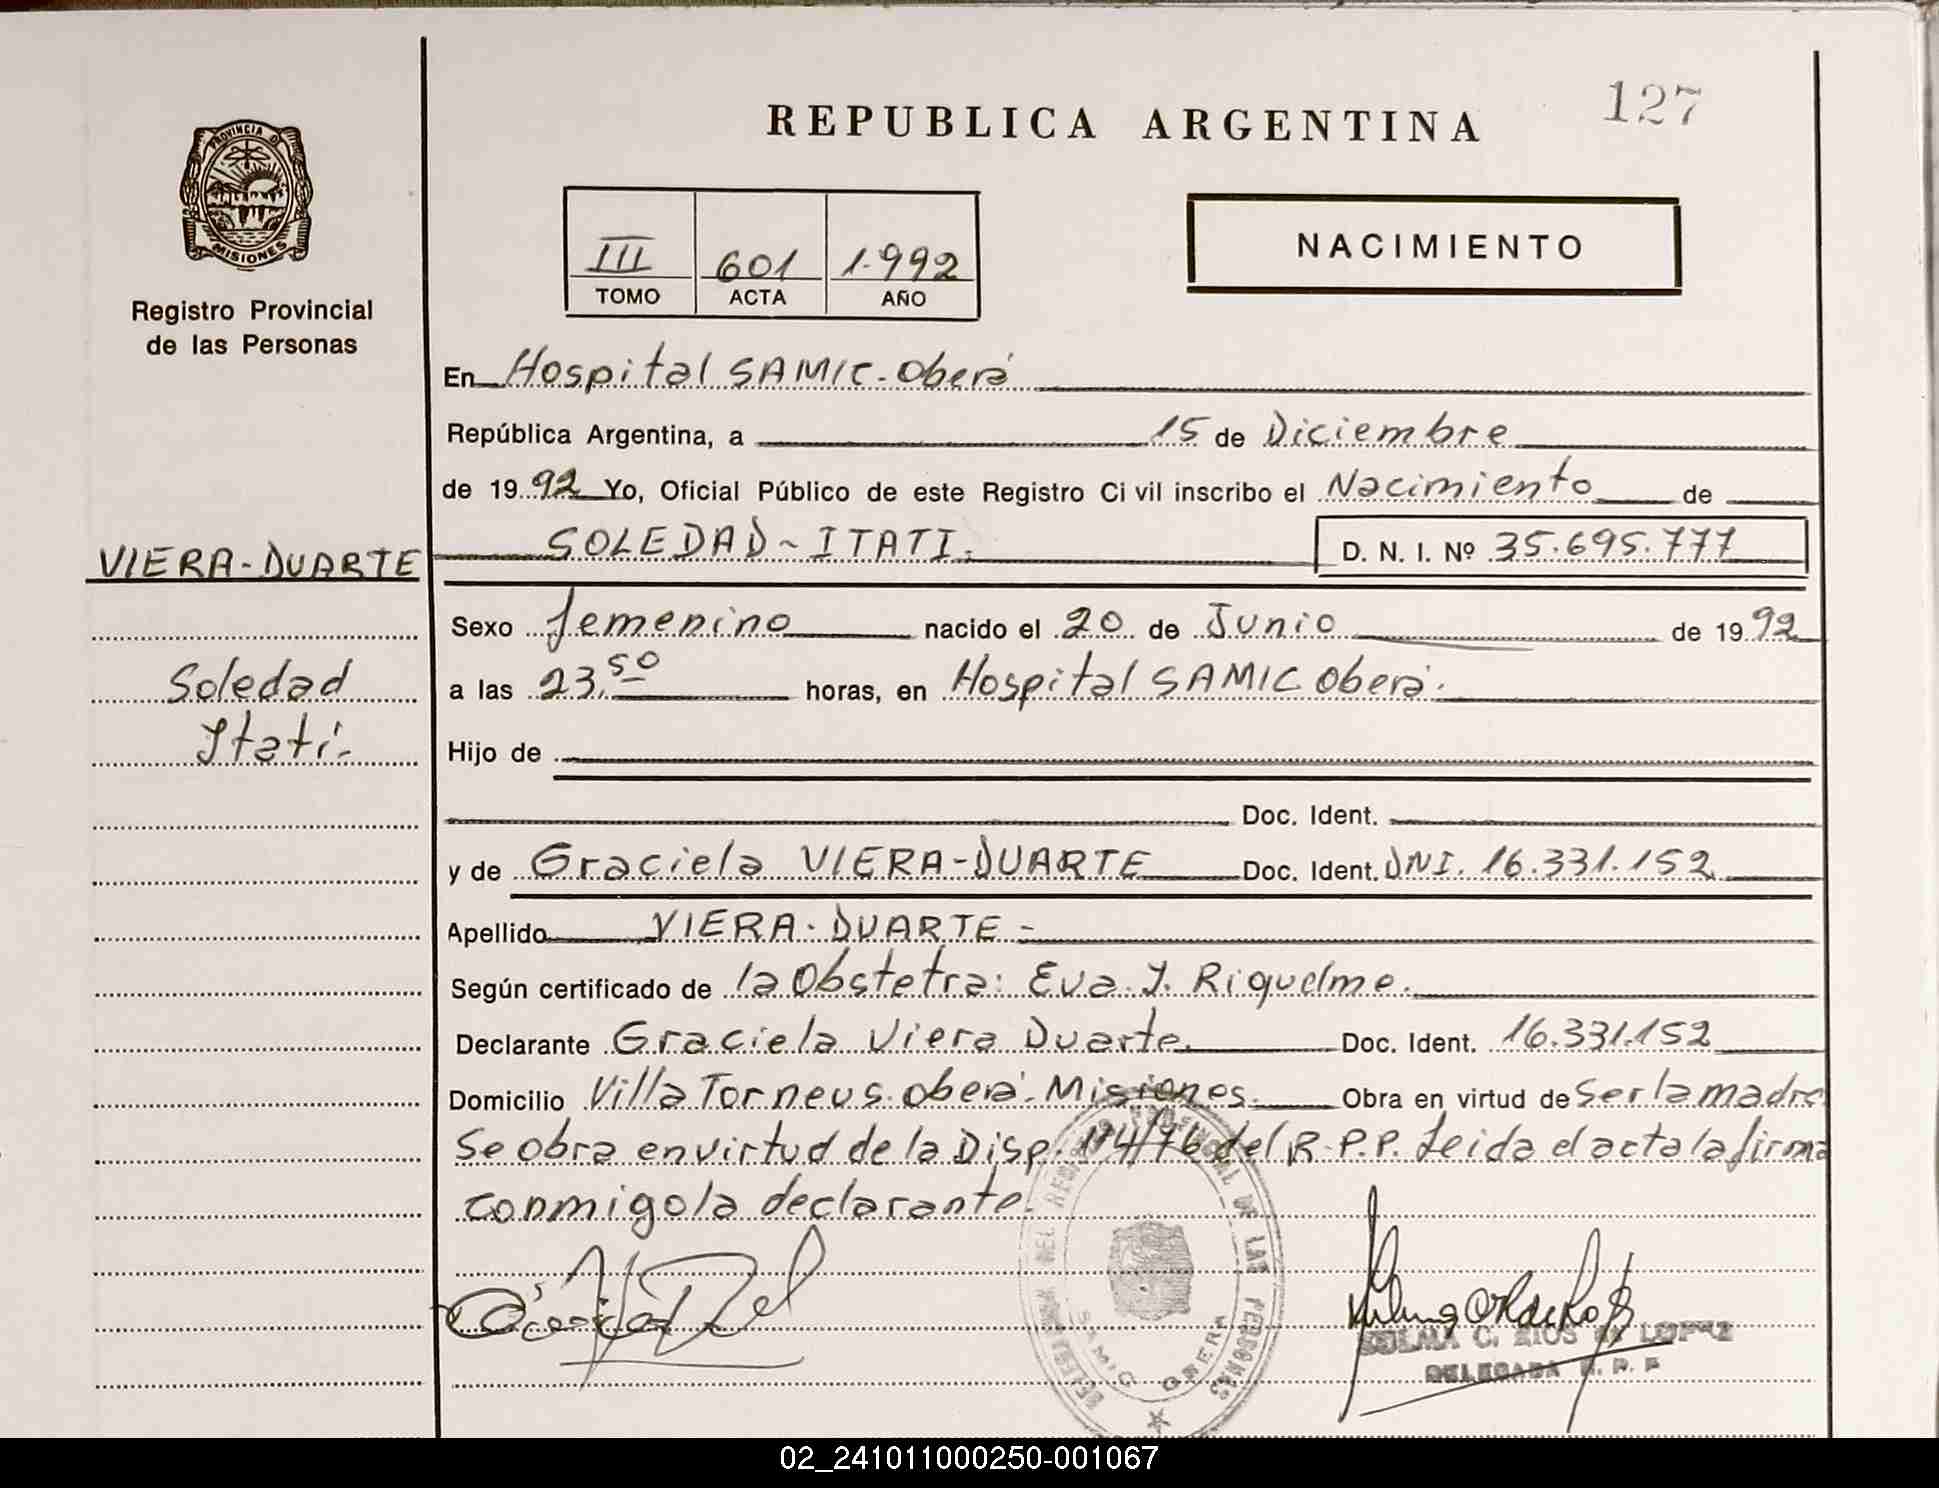 127
REPUBLICA ARGENTINA
PROVINCIA DE
MISIONES
Registro Provincial
de las Personas
III 601 1.992
TOMO ACTA AÑO
NACIMIENTO
En Hospital SAMIC-Oberá
República Argentina, a 15 de Diciembre
de 1992 Yo, Oficial Público de este Registro Ci vil inscribo el Nacimiento de
VIERA-DUARTE
SOLEDAD~ITATI. D. N. I. Nº 35.695.777
Sexo femenino nacido el 20 de Junio de 1992
Soledad
Itatí-
a las 23,50 horas, en Hospital SAMIC Oberá.
Hijo de
Doc. Ident.
y de Graciela VIERA-DUARTE Doc. Ident. DNI. 16.331.152
Apellido VIERA-DUARTE-
Según certificado de la Obstetra: Eva. I. Riquelme.
Declarante Graciela Viera Duarte. Doc. Ident. 16.331.152
Domicilio Villa Torneus. Oberá. Misiones. Obra en virtud de Ser la madre
Se obra en virtud de la Disp. 114/76 del R.P.P. Leida el acta la firma
conmigo la declarante.
REGISTRO PROVINCIAL DE LAS PERSONAS
SAMIC OBERA
C. RIOS de LOPEZ
DELEGADA R. P. P
02_241011000250-001067